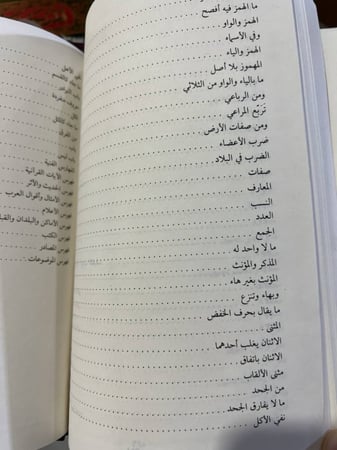 ما الهمز فيه أفصح
الهمز والواو
وفي الأسماء
الهمز والياء
المهموز بلا أصل
ما بالياء والواو من الثلاثي
ومن الرباعي
تَرَبُّع المراعي
ومن صفات الأرض
ضرب الأعضاء
الضرب في البلاد
صفات
المعارف
النسب
العدد
الجمع
ما لا واحد له
المذكر والمؤنث
المؤنث بغير هاء
وبهاء وتنزع
ما يقال بحرف الخفض
المثنى
الاثنان يغلب أحدهما
الاثنان باتفاق
مثنى الألقاب
من الجحد
ما لا يفارق الجحد
نفي الأكل
الفنية
الآيات القرآنية
فهرس الأمثال وأقوال العرب
فهرس الأعلام
فهرس الأماكن والبلدان
فهرس الكتب
فهرس المصادر
فهرس الموضوعات